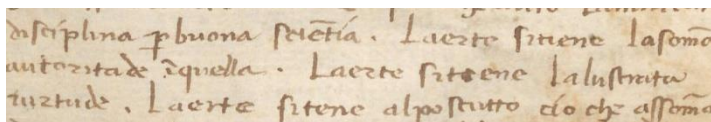 disciplina ꝑ buona scientia. Laerte sitiene la som̃a
autoritade ĩquella. Laerte sitiene lalustrata
uirtude. Laerte sitene alposcutto cio che assom̃a